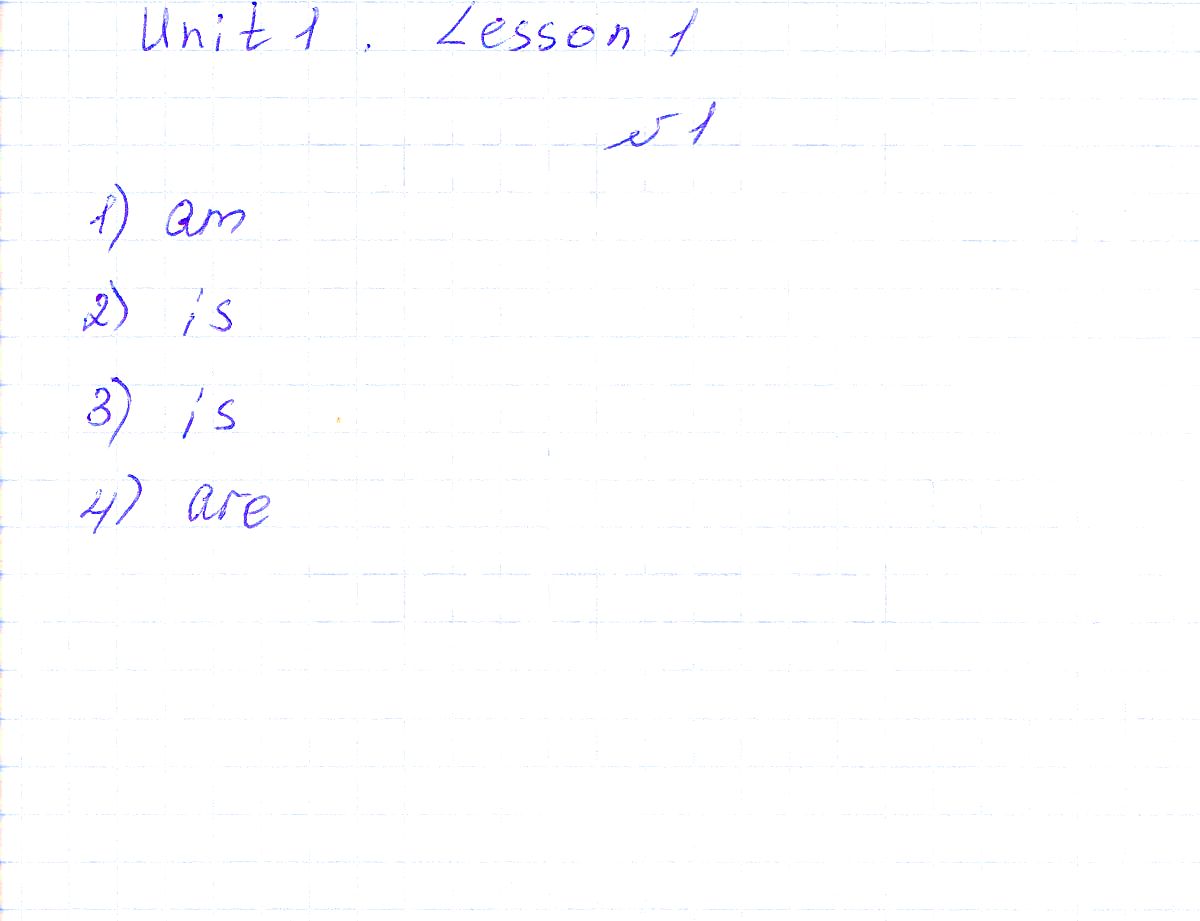 Unit 1. Lesson 1
№1
1) am
2) is
3) is
4) are